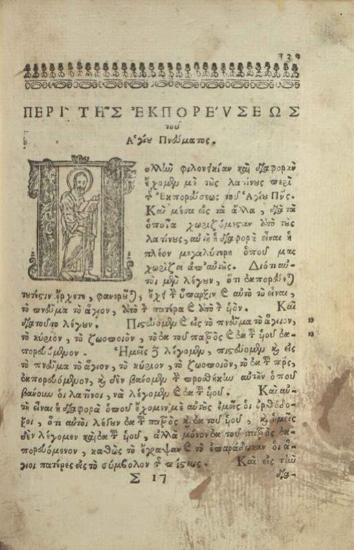 ΠΕΡΙ ΤΗΣ ἘΚΠΟΡΕΎΣΕΩΣ
τοῦ
Ἁγίου Πνεύματος.
Πολλὴν φιλονεικίαν καὶ διαφορὰν
ἔχομεν μὲ τοὺς λατίνους περὶ
τ Ἐκπορεύσεως τοῦ Ἁγίου Πνς.
Καὶ μέσα εἰς τὰ ἄλλα, διὰ τὰ
ὁποῖα χωριζόμεσταν ἀπὸ τοὺς
λατίνους, αὐτὴ ἡ διαφορὰ εἶναι ἡ
πλέον μεγαλύτερη ὁποῦ μας
χωρίζει ἀπ' αὐτούς. Διότι αὐ-
τοὶ μὲν λέγουν, ὅτι ἐκπορεύε
τὸ πνεῦμα τὸ ἅγιον, ἀπὸ τ πατέρα ϗ ἀπὸ τ ὑόν. Καὶ
διὰ τοῦτο λέγουν. Πιστεύομεν ϗ εἰς τὸ πνεῦμα τὸ ἅγιον,
τὸ κύριον, τὸ ζωοποιὸν, τὸ ἐκ τοῦ πατρὸς ϗ ἐκ τ ὑοῦ ἐκ-
πορευόμενον. Ἡμεῖς λέγομεν, πιστεύομεν ϗ εἰς
τὸ πνεῦμα τὸ ἅγιον, τὸ κύριον, τὸ ζωοποιὸν, τὸ ἐκ τ πρς,
ἐκπορευόμενον, ϗ δὲν βάνομεν τ προθήκην αὐτῶν ὁποῦ
βάνουν οἱ λατίνοι, νὰ λέγομεν ϗ ἐκ τ ὑοῦ. Καὶ αὐ-
τὸ εἶναι ἡ διαφορὰ ὁποῦ ἔχομεν μὲ αὐτοὺς ἡμεῖς οἱ ὀρθόδο-
ξοι, ὅτι αὐτοὶ λέγουν ἐκ τ πατρὸς ϗ ἐκ τοῦ ὑοῦ, ϗ ἡμεῖς
δὲν λέγομεν καὶ ἐκ τ ὑοῦ, ἀλλὰ μόνον ἐκ τοῦ πατρὸς ἐκ-
πορευόμενον, καθὼς τὸ ἔγραψαν ϗ τὸ ἐπαράδωκαν οἱ ἅ-
γιοι πατέρες εἰς τὸ σύμβολον τ πίστεως. Καὶ εἰς τοῦ
Σ 17